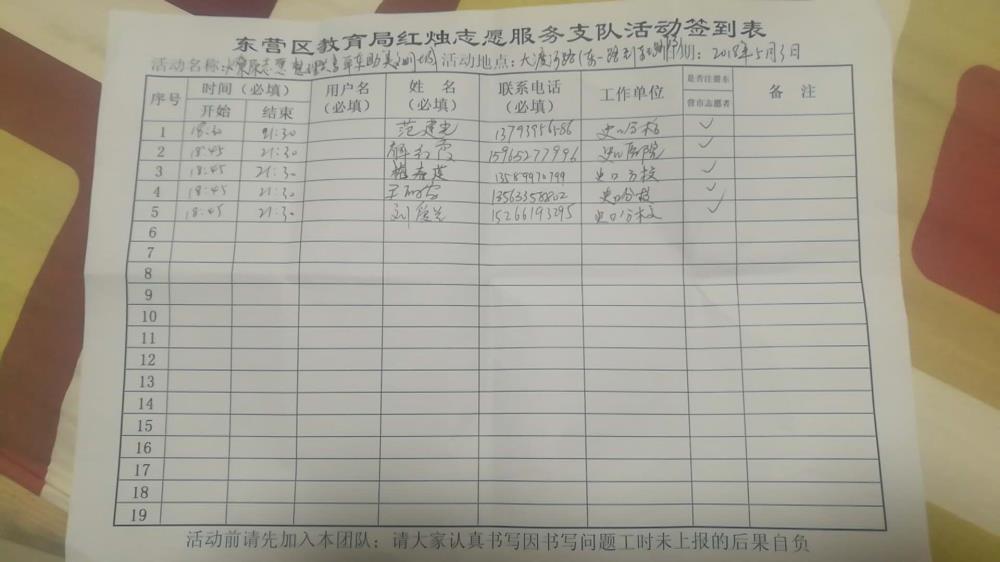 东营区教育局红烛志愿服务支队活动签到表
活动名称: 志愿 单车助美 活动地点: 大渡河路 2018年5月3日
序号 时间（必填） 用户名（必填） 姓名（必填） 联系电话（必填） 工作单位 是否注册东营市志愿者 备注
开始 结束
1 18:30 21:30 范建光 13793956586 史口分校 ✓
2 18:45 21:30 解红霞 15965277996 史口医院 ✓
3 18:45 21:30 13589970799 史口分校 ✓
4 18:45 21:30 王 13563358802 史口分校 ✓
5 18:45 21:30 刘爱 15266193295 史口分校 ✓
6
7
8
9
10
11
12
13
14
15
16
17
18
19
活动前请先加入本团队；请大家认真书写因书写问题工时未上报的后果自负